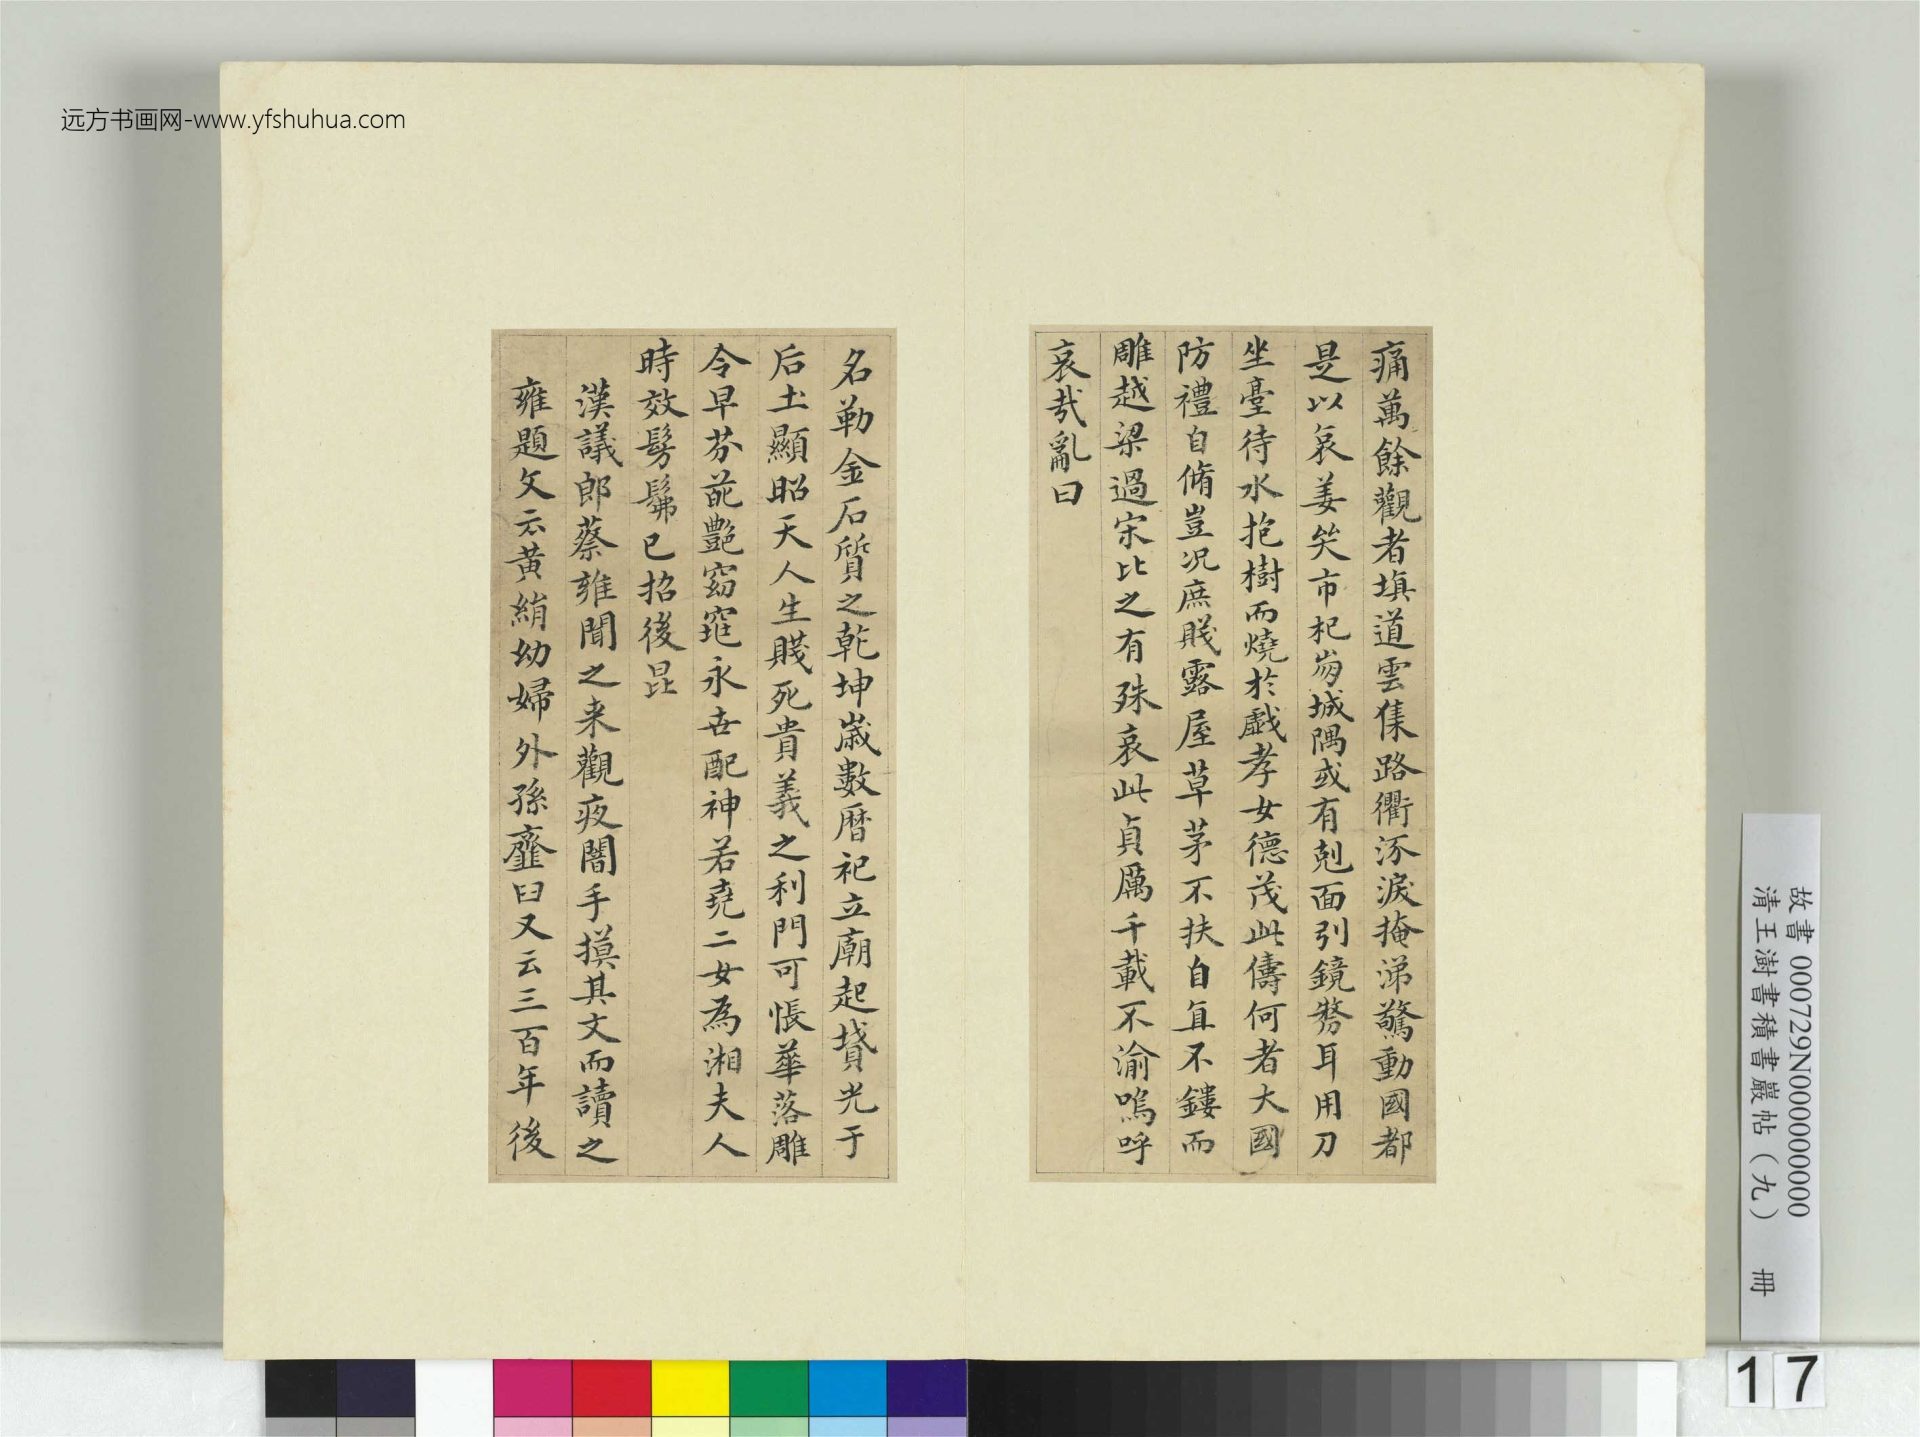 远方书画网-www.yfshuhua.com
痛萬餘觀者填道雲集路衢泺淚掩涕驚動國都
是以哀姜笑市杞崩城隅或有剋面引鏡剺耳用刀
坐臺待水抱樹而燒於戲孝女德茂此儔何者大國
防禮自脩豈況庶賤露屋草茅不扶自直不鏤而
雕越梁過宋比之有殊哀此貞厲千載不渝嗚呼
哀哉亂曰
名勒金石質之乾坤歲數曆祀立廟起墳光于
后土顯昭天人生賤死貴義之利門可悵華落雕
令早芬葩艷窈窕永世配神若堯二女為湘夫人
時效髣髴已招後昆
漢議郎蔡雍聞之来觀夜闇手摸其文而讀之
雍題文云黃絹幼婦外孫齏臼又云三百年後
故書 000729N000000000
清王澍書積書巖帖（九） 冊
17